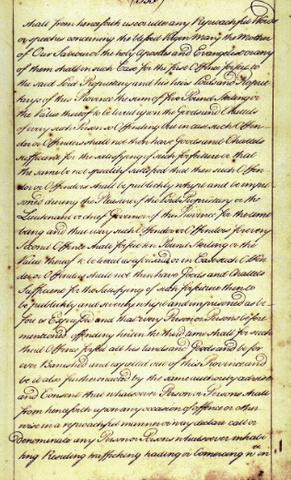 shall from henceforth use or utter any Reproachful Words
or speeches concerning the blessed Virgin Mary the Mother
of Our Saviour or the holy Apostles or Evangelists or any
of them shall in such Case for the first Offence forfeit to
the said Lord Proprietary and his heirs Lords and Proprie
tarys of this Province the sum of five Pound Sterling or
the Value thereof to be levied upon the Goods and Chattels
of every such Person so Offending But in case such Offen
der or Offenders shall not then have Goods and Chattels
sufficient for the satisfying of such forfeiture or that
the same be not speedily satisfied that then such Offen
der or Offenders shall be publickly whipt and be impri
soned during the Pleasure of the Lord Proprietary or the
Lieutenant or chief Governor of this Province for the time
being and that every such Offender or Offenders for every
Second Offence shall forfeit ten Pound Sterling or the
Value thereof to be levied as aforesaid or in Case such Offen
der or Offenders shall not then have Goods and Chattels
Sufficient for the satisfying of such forfeiture then to
be publickly and severely whipt and imprisoned as be
fore is Expressed and that every Person or Persons before
mentioned offending herein the third time shall for such
third Offence forfeit all his lands and Goods and be for
ever Banished and expelled out of this Province and
be it also further enacted by the same authority advice
and Consent that whatsoever Person or Persons shall
from henceforth upon any occasion of offence or other
wise in a reproachful manner or way declare call or
Denominate any Person or Persons whatsoever inhabi
ting Residing traffecking trading or comercing w:in